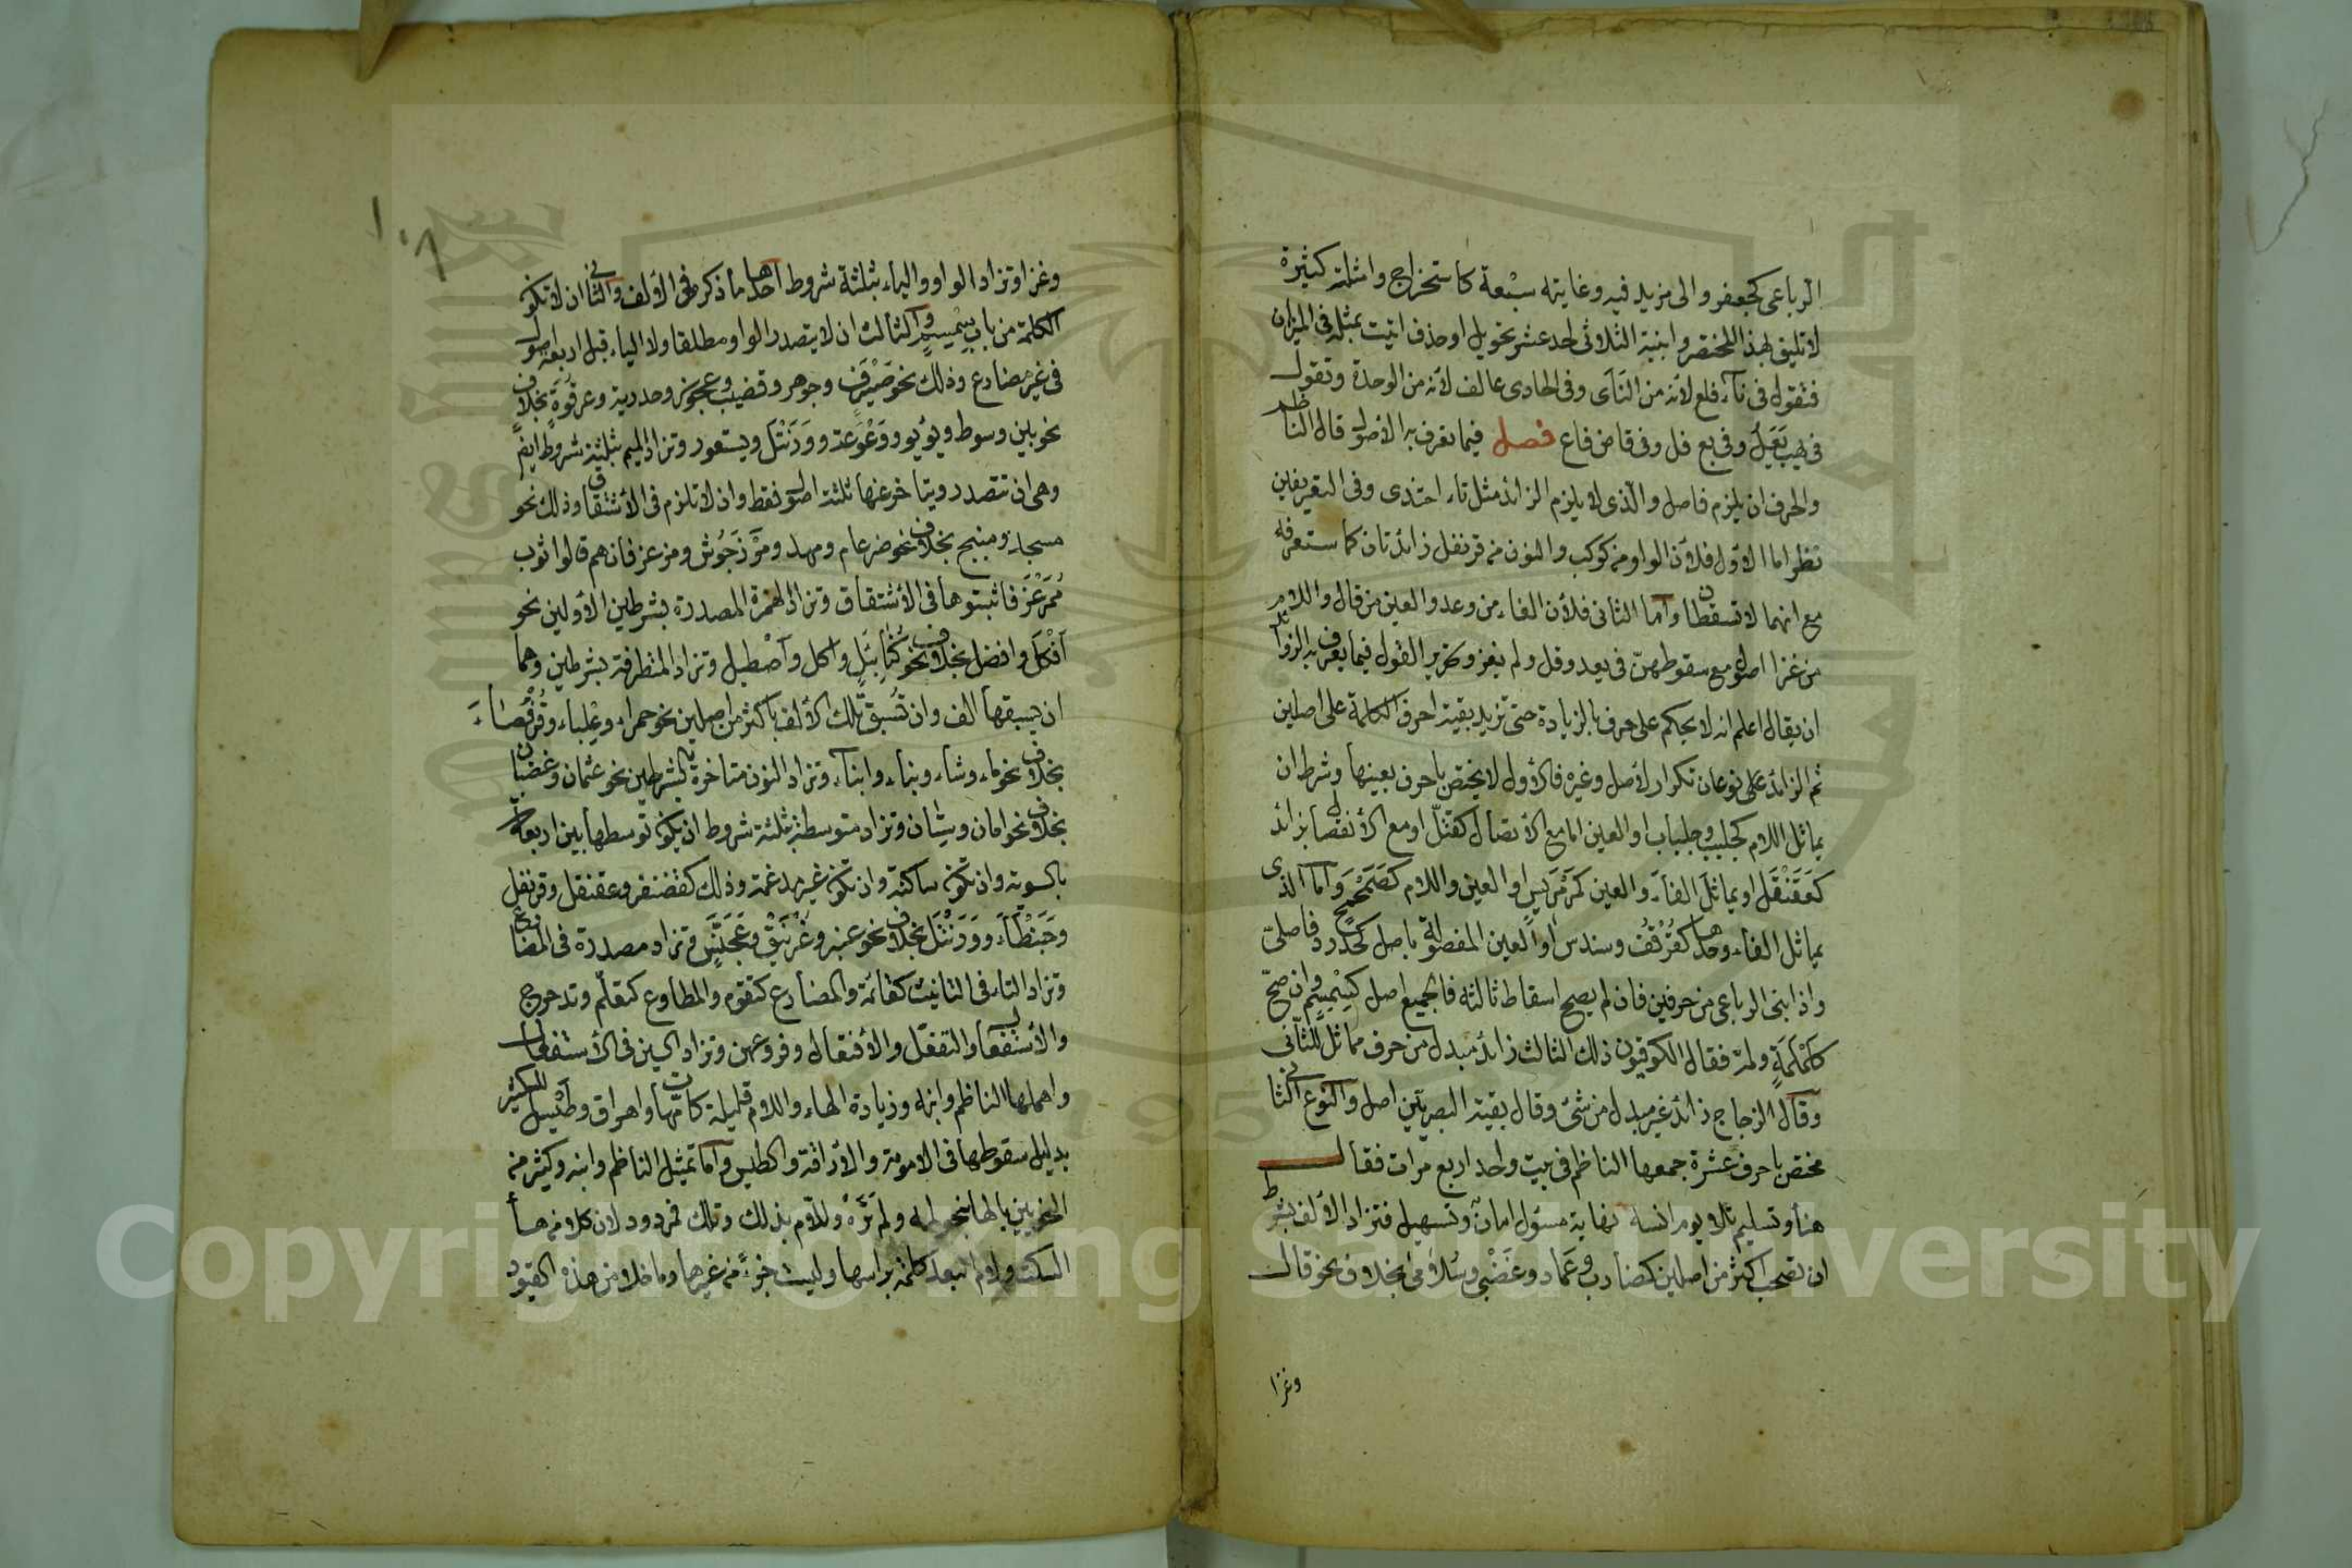 الرباعى كجعفر والى مزيد فيه وغايته سبعة كاستخراج وامثلته كثيرة
لا تليق بهذا المختصر وابنية الثلاثى احد عشر بتحويل اوحذف اتيت بمثله فى الميزان
فتقول فى ناء فلع لأنه من النأى وفى الحادى عالف لأنه من الوحدة وتقول
فى يهب يعل وفى بع فل وفى قاض فاع فصل فيما يعرف به الاصول قال الناظم
والحرف ان يلزم فاصل والذى لا يلزم الزائد مثل تاء احتذى وفى التعريفين
نظر اما الاول فلأن الواو من كوكب والنون من قرنفل زائدتان كما ستعرفه
مع انهما لا تسقطان واما الثانى فلأن الفاء من وعد والعين من قال واللام
من غزا اصول مع سقوطهن فى يعد وقل ولم يغز وتحرير القول فيما يعرف به الزوائد
ان يقال اعلم انه لا يحكم على حرف بالزيادة حتى تزيد بقية احرف الكلمة على اصلين
ثم الزائد على نوعان تكرار لأصل وغيره فالأول لا يختص باحرف بعينها وشرط ان
يماثل اللام كجلبب وجلباب او العين اما مع الأتصال كقتل او مع الأنفصال بزائد
كعقنقل او يماثل الفاء والعين كمرمريس او العين واللام كصمحمح واما الذى
يماثل الفاء وحدها كقرقف وسندس او العين المفصولة باصل كحدرد فاصلى
واذا بنى الرباعى من حرفين فان لم يصح اسقاط ثالثه فالجميع اصل كسمسم وان صح
كلملمة ولمه فقال الكوفيون ذلك الثالث زائد مبدل من حرف مماثل للثانى
وقال الزجاج زائد غير مبدل من شئ وقال بقية البصريين اصل والنوع الثانى
مختص باحرف عشرة جمعها الناظم فى بيت واحد اربع مرات فقال
هناء وتسليم تلا يوم انسه نهاية مسئول امان وتسهيل فتزاد الألف بشرط
ان تصحب اكثر من اصلين كضارب وعماد وغضبى وسلامى بخلاف نحو قال
وغزا
١٠٦
وغزا وتزاد الواو والياء بثلثة شروط احدها ما ذكر فى الألف والثانى ان لا تكون
الكلمة من باب سمسم والثالث ان لا يتصدر الواو مطلقا ولا الياء قبل اربعة اصول
فى غير مضارع وذلك نحو صيرف وجوهر وقضيب وعجوز وحدرية وعرقوة بخلاف
نحو بين وسوط ويؤيؤ ووعوعة وورنتل ويستعور وتزاد الميم بثلثة شروط ايضا
وهى ان تتصدر ويتاخر عنها ثلثة اصول فقط وان لا تلزم فى الأشتقاق وذلك نحو
مسجد ومنبج بخلاف نحو ضرغام ومهد ومرزجوش ومرعز فانهم قالوا ثوب
ممرعز فاثبتوها فى الأشتقاق وتزاد الهمزة المصدرة بشرطين الأولين نحو
افكل وافضل بخلاف نحو كنابيل واكل واصطبل وتزاد المتطرفة بشرطين وهما
ان يسبقها الف وان تسبق تلك الألف باكثر من اصلين نحو حمراء وعلباء وقرفصاء
بخلاف نحو ماء وشاء وبناء وابناء وتزاد النون متاخرة بالشرطين نحو عثمان وغضبان
بخلاف نحو امان وسنان وتزاد متوسطة بثلثة شروط ان يكون توسطها بين اربعة
بالسوية وان تكون ساكنة وان تكون غير مدغمة وذلك كغضنفر وعقنقل وقرنفل
وحبنطاء وورنتل بخلاف نحو عنبر وغرنيق وعجنس وتزاد مصدرة فى المضارع
وتزاد التاء فى التانيث كقائمة والمضارع كتقوم والمطاوع كتعلم وتدحرج
والأستفعال والتفعل والأفتعال وفروعهن وتزاد السين فى الأستفعال
واهملها الناظم وابنه وزيادة الهاء واللام قليلة كامهات واهراق وطيسل للكثير
بدليل سقوطها فى الامومة والأراقة والطيس واما تمثيل الناظم وابنه وكثير من
النحويين بالهاء بنحو لمه ولم تره وللام بذلك وتلك فمردود لان كلا من هاء
السكت ولام البعد كلمة براسها وليست جزءً من غيرها وما خلا من هذه القيود